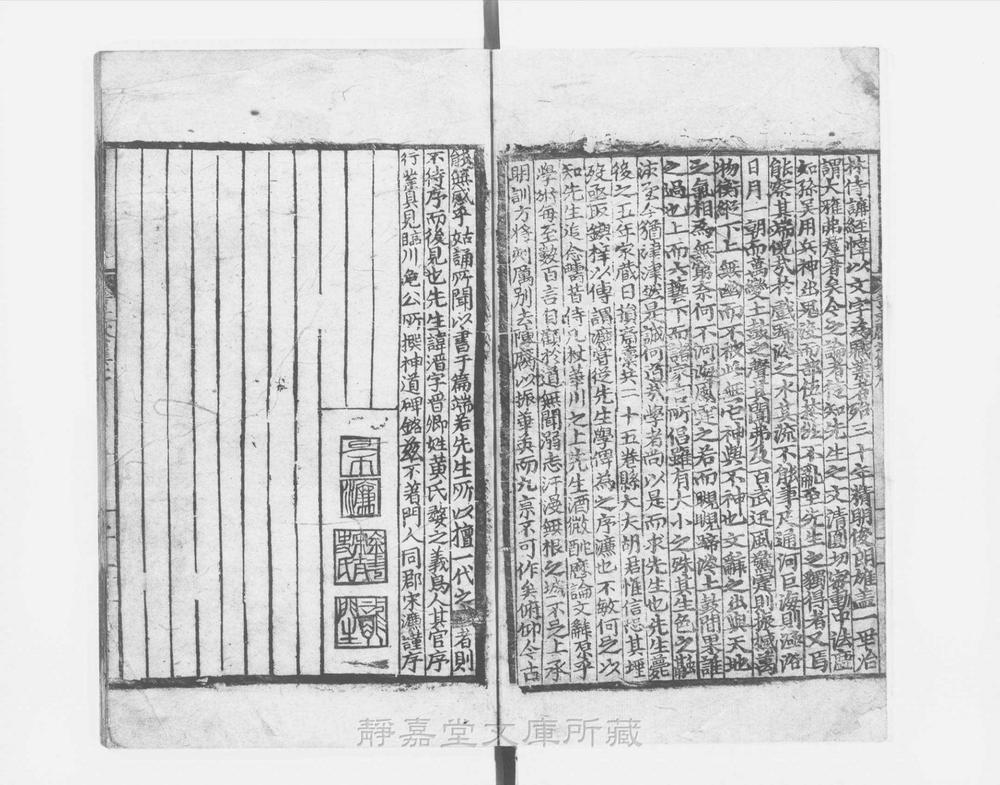 於侍講經幃以文字為職業者殆三十年精明俊朗雄蓋一世冶
謂大雅弗羣者矣今之論者徒知先生之文清圓切密動中法度
如孫吳用兵神出鬼沒而部伍整然不亂至先生之獨得者又焉
能察其端倪哉於戲蹏涔之水其流不能尋尺通河巨海則涵浴
日月一朝而萬變土鼓之聲其聞弗及百武迅風驚霆則振撼萬
物衡縱下上無幽而不被此無它神與不神也文辭之出與天地
之氣相為無窮奈何不河海風霆之若而睍睍蹏涔土鼓間果誰
之過也上而六藝下而諸家言所倡雖有大小之殊其生色之融
液至今猶津津然是誠何道哉學者尚以是而求先生也先生薨
後之五年家藏日損齋藁矣二十五卷縣大夫胡君惟信恐其埋
歿亟取鏤梓以傳謂濂嘗從先生學俾為之序濂也不敏何足以
知先生追念疇昔侍几杖華川之上先生酒微酣應論文辭
學術每至數百言自顧於道無聞溺志汗漫無根之域不足上承
明訓方將刻厲別去陳腐以振華英而九京不可作矣俯仰今古
能無感乎姑誦所聞以書于篇端若先生所以擅一代之 者則
不待序而後見也先生諱溍字晉卿姓黃氏婺之義烏人其官序
行實具見臨川危公所撰神道碑銘茲不著門人同郡宋濂謹序
宋濂
靜嘉堂文庫所藏